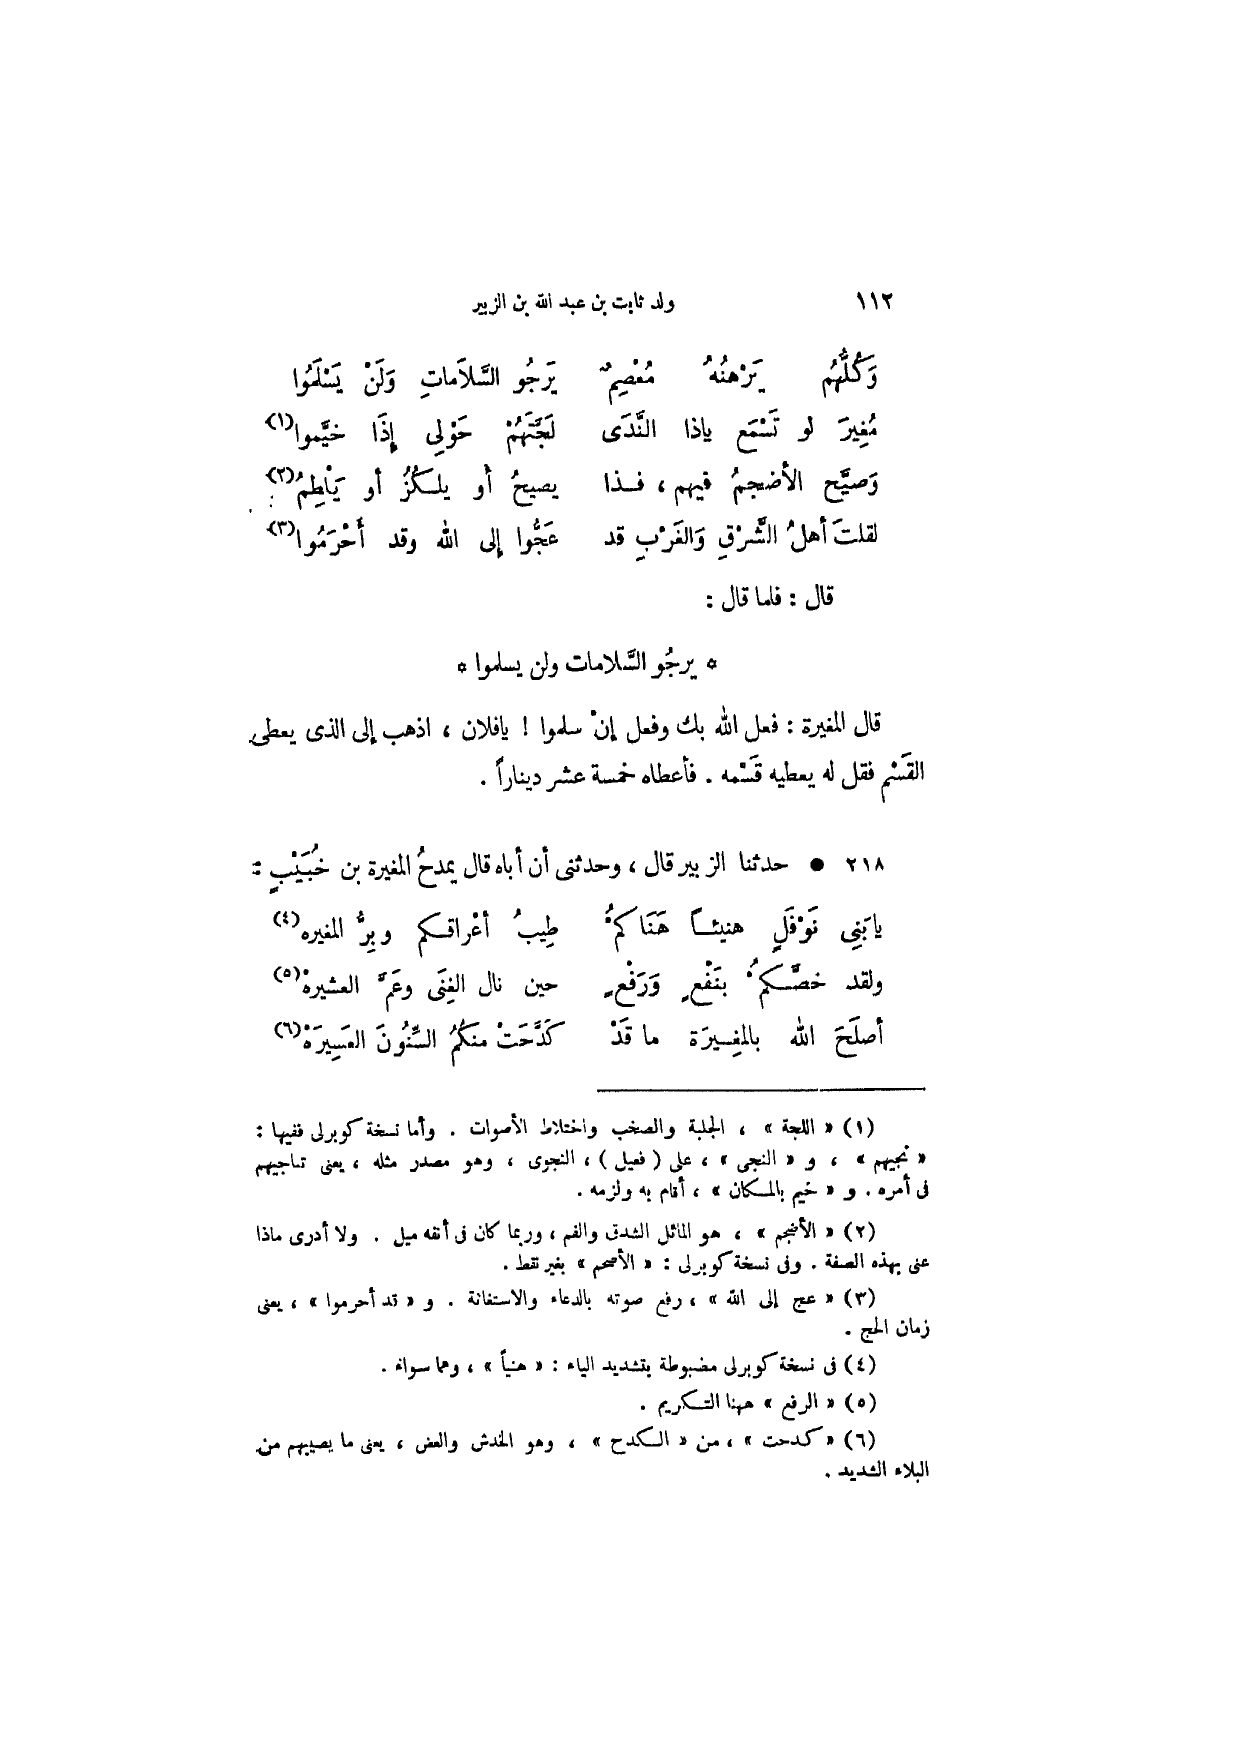 ١١٢ ولد ثابت بن عبد الله بن الزبير
وَكُلُّهُم يَرْهَنُهُ مُعْصِمٌ يَرجُو السَّلاَماتِ وَلَنْ يَسْلَمُوا
مُغِيرَ لو تَسْمَع ياذا النَّدَى لَجَّتَهُمْ حَوْلِى إِذَا خيَّموا(١)
وَصيَّح الأضجمُ فيهم ، فـذا يصيحُ أو يلـكُزُ أو يَلْطِمُ(٢)
لقلتَ أهلُ الشَّرْقِ وَالغَرْبِ قد عَجُّوا إلى الله وقد أَحْرَمُوا(٣)
قال : فلما قال :
* يرجُو السَّلامات ولن يسلموا *
قال المغيرة : فعل الله بك وفعل إنْ سلموا ! يافلان ، اذهب إلى الذى يعطى
القَسْم فقل له يعطيه قَسْمه . فأعطاه خمسة عشر ديناراً .
٢١٨ ● حدثنا الزبير قال ، وحدثنى أن أباه قال يمدحُ المغيرة بن خُبَيْبٍ :
يابَنِى نَوْفَلٍ هنيئـاً هَنَاكمُ طِيبُ أعْراقـكم وبِرُّ المغيره(٤)
ولقد خصَّـكمُ بنَفْعٍ وَرَفْعٍ حين نال الغِنَى وعَمَّ العشيرهْ(٥)
أصلَحَ الله بالمغِـيرَة ما قَدْ كَدَّحَتْ منكُمُ السِّنُونَ العَسِيرَهْ(٦)
(١) « اللجة » ، الجلبة والصخب واختلاط الأصوات . وأما نسخة كوبرلى ففيها :
« نجيهم » ، و « النجى » ، على ( فعيل ) ، النجوى ، وهو مصدر مثله ، يعنى تناجيهم
فى أمره . و « خيم بالمـكان » ، أقام به ولزمه .
(٢) « الأضجم » ، هو المائل الشدق والفم ، وربما كان فى أنفه ميل . ولا أدرى ماذا
عنى بهذه الصفة . وفى نسخة كوبرلى : « الأصحم » بغير نقط .
(٣) « عج إلى الله » ، رفع صوته بالدعاء والاستغاثة . و « قد أحرموا » ، يعنى
زمان الحج .
(٤) فى نسخة كوبرلى مضبوطة بتشديد الياء : « هنياًّ » ، وهما سواء .
(٥) « الرفع » ههنا التـكريم .
(٦) « كدحت » ، من « الـكدح » ، وهو الخدش والعض ، يعنى ما يصيبهم من
البلاء الشديد .